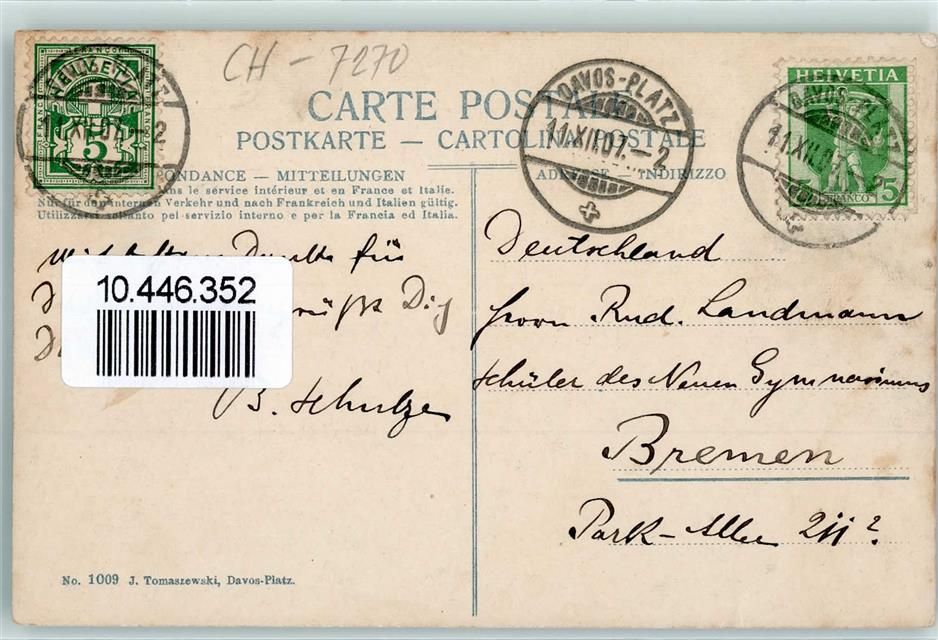 CH-7270
FRANCO
HELVETIA
5
HELVETIA
FRANCO
5
DAVOS-PLATZ
11.XII.07.-2
DAVOS-PLATZ
11.XII.07
XII.07.-2
CARTE POSTALE
POSTKARTE — CARTOLINA POSTALE
PONDANCE — MITTEILUNGEN
ADRESSE — INDIRIZZO
ns le service intérieur et en France et Italie.
Nur für den internen Verkehr und nach Frankreich und Italien gültig.
Utilizzarsi soltanto pel servizio interno e per la Francia ed Italia.
Mit Danke für
grüßt Dich
B. Schulze
10.446.352
Deutschland
Herrn Rud. Landmann
Schüler des Neuen Gymnasiums
Bremen
Park-Allee
No. 1009 J. Tomaszewski, Davos-Platz.